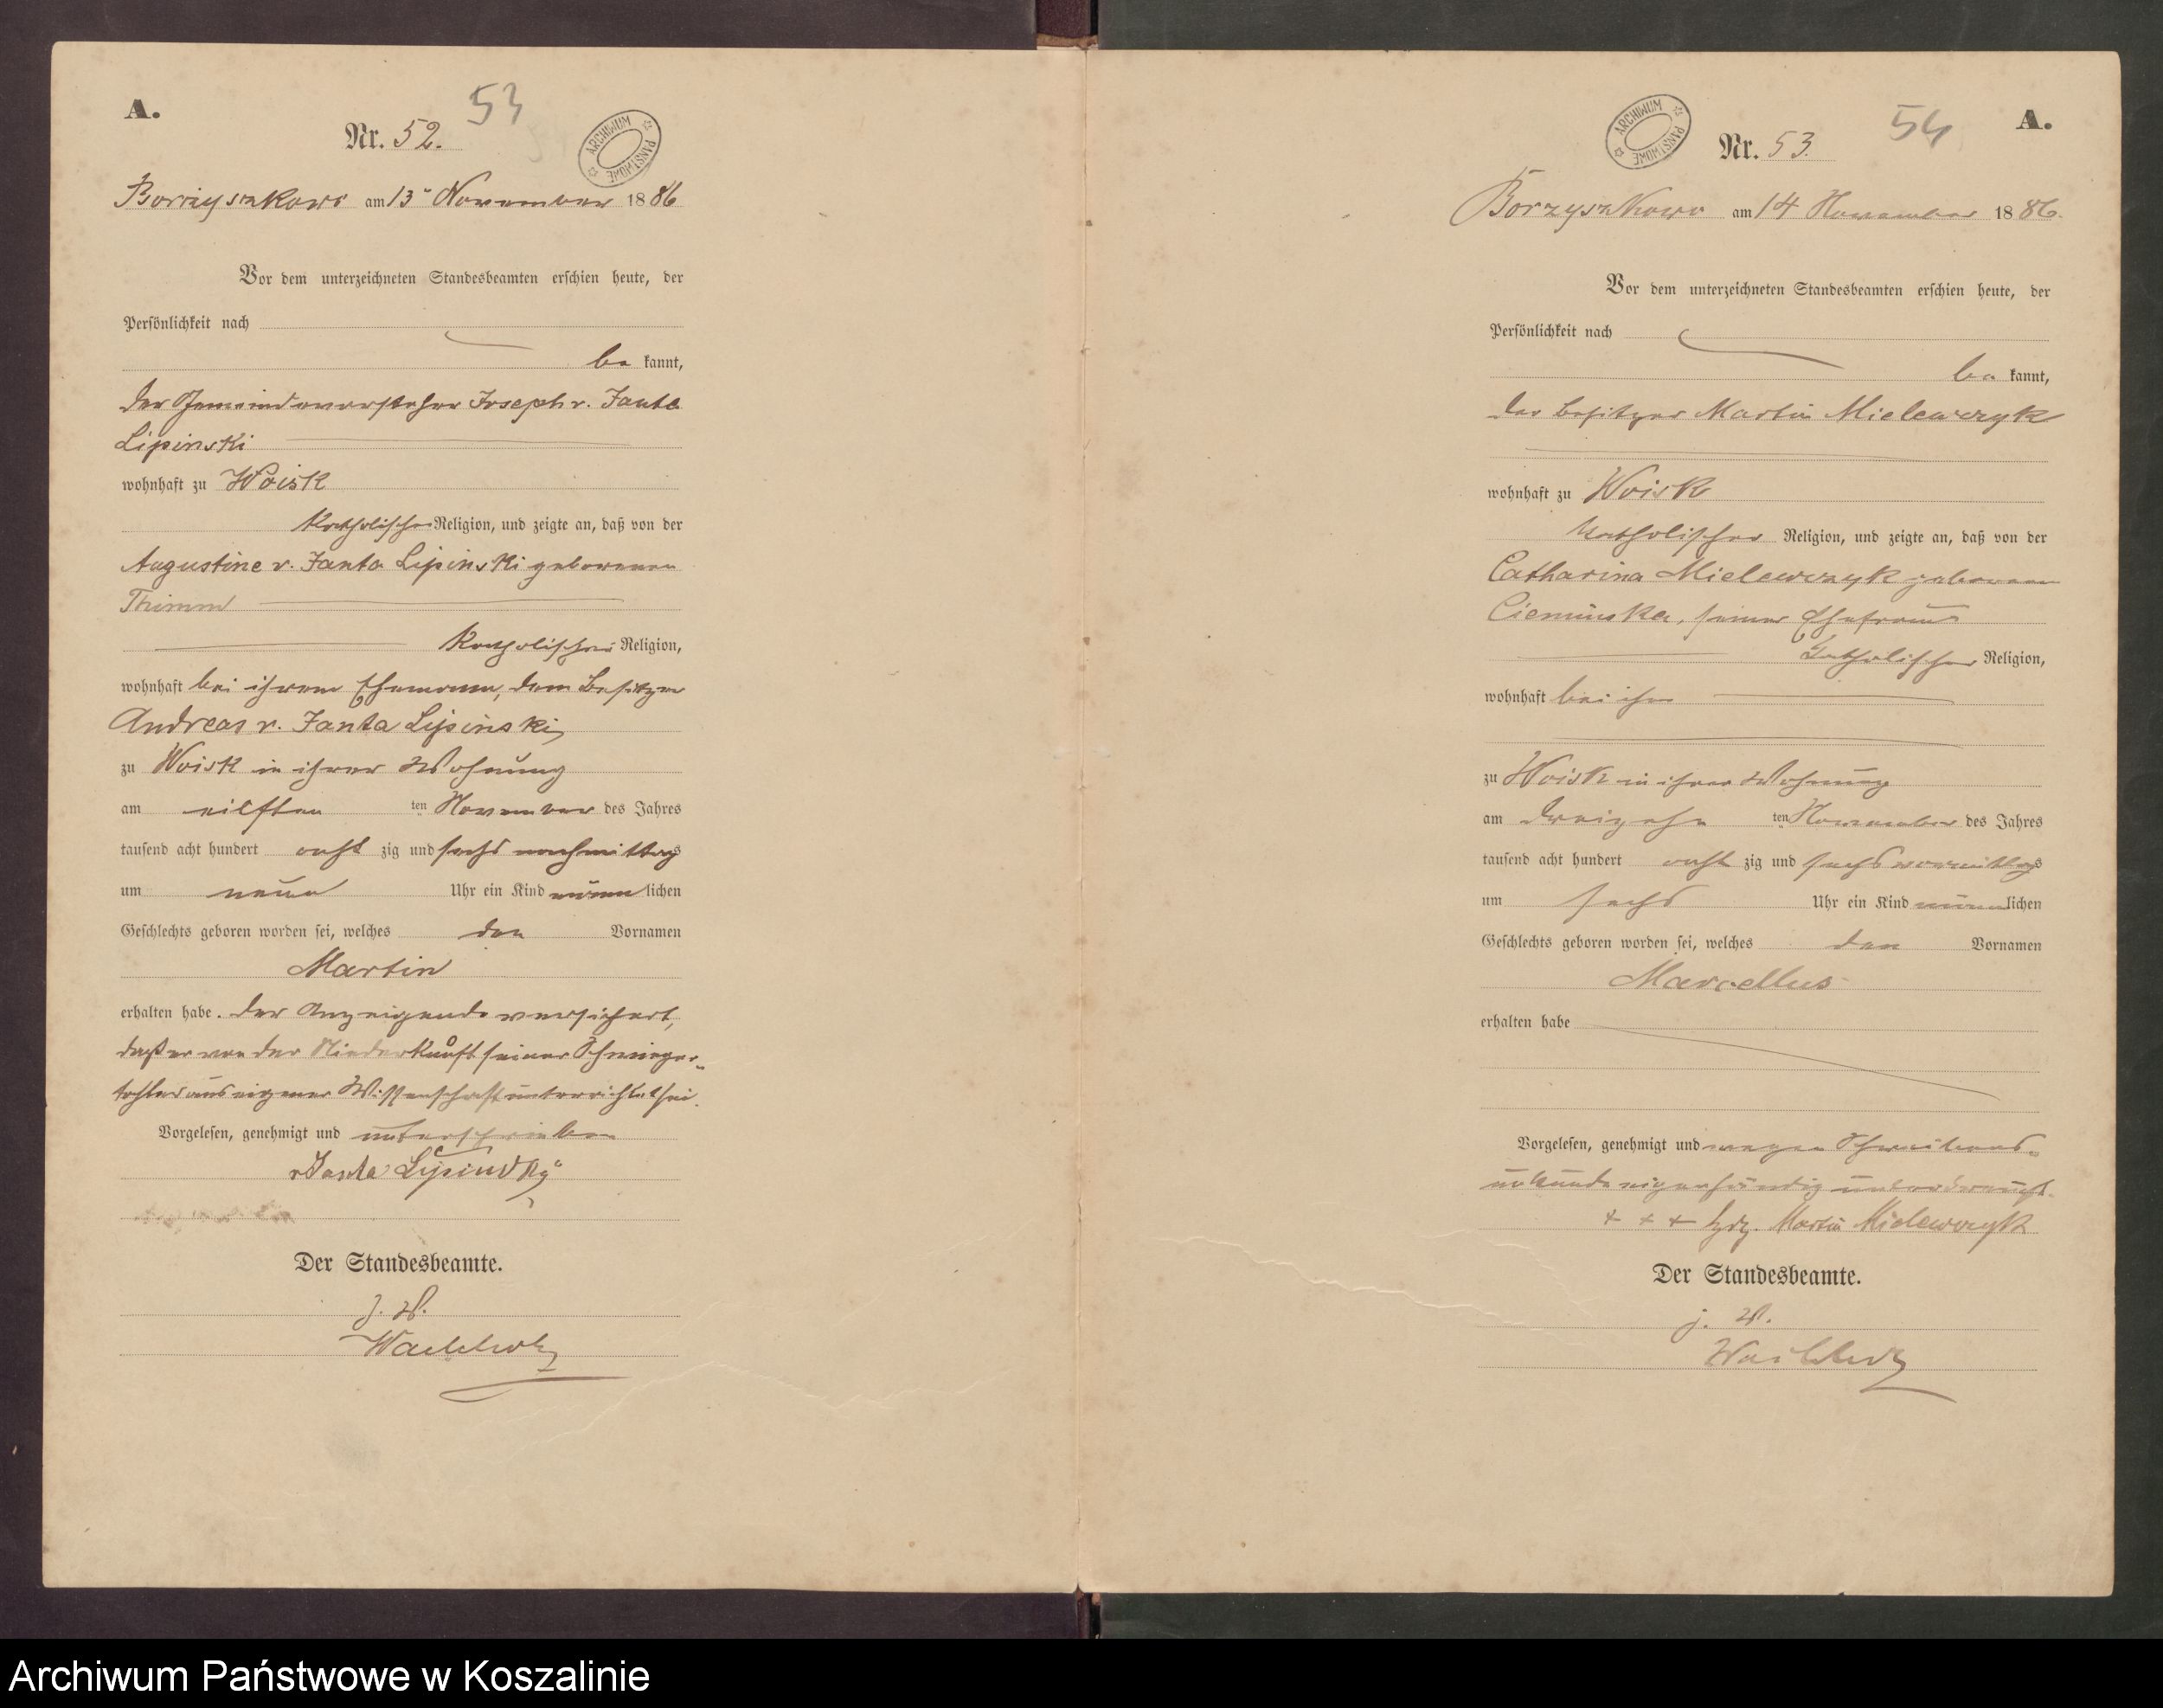 A.
53
Nr. 52.
ARCHIWUM PAŃSTWOWE
Borzyszkowo am 13 November 1886
Vor dem unterzeichneten Standesbeamten erschien heute, der
Persönlichkeit nach
be kannt,
der Gemeindevorsteher Joseph v. Janta
Lipinski
wohnhaft zu Woisk
katholischer Religion, und zeigte an, daß von der
Augustine v. Janta Lipinski geborenen
Thimm
katholischer Religion,
wohnhaft bei ihrem Ehemann, dem Besitzer
Andreas v. Janta Lipinski,
zu Woisk in ihrer Wohnung
am eilften ten November des Jahres
tausend acht hundert acht zig und sechs nachmittags
um neun Uhr ein Kind männ lichen
Geschlechts geboren worden sei, welches den Vornamen
Martin
erhalten habe. Der Anzeigende versichert,
daß er von der Niederkunft seiner Schwieger-
tochter aus eigener Wissenschaft unterrichtet sei.
Vorgelesen, genehmigt und unterschrieben
v Janta Lipinsky
Der Standesbeamte.
J. V.
ARCHIWUM PAŃSTWOWE
Nr. 53.
54
A.
Borzyszkowo am 14 November 1886.
Vor dem unterzeichneten Standesbeamten erschien heute, der
Persönlichkeit nach
be kannt,
der Besitzer Martin Mielewczyk
wohnhaft zu Woisk
katholischer Religion, und zeigte an, daß von der
Catharina Mielewczyk geborenen
Cieminska, seiner Ehefrau
katholischer Religion,
wohnhaft bei ihm
zu Woisk in ihrer Wohnung
am dreizehn ten November des Jahres
tausend acht hundert acht zig und sechs vormittags
um sechs Uhr ein Kind männ lichen
Geschlechts geboren worden sei, welches den Vornamen
Marcellus
erhalten habe
Vorgelesen, genehmigt und wegen Schreibens-
unkunde eigenhändig unterkreuzt.
+ + + hdz. Martin Mielewczyk
Der Standesbeamte.
J. V.
Archiwum Państwowe w Koszalinie